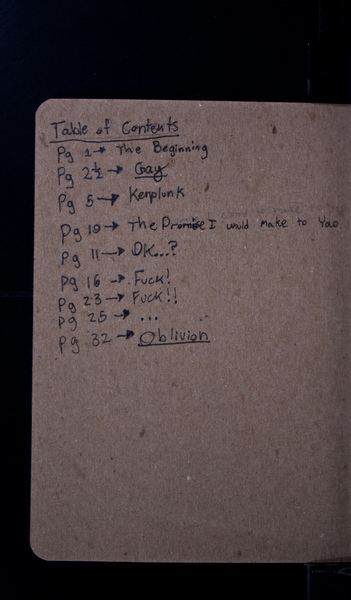 Table of Contents
Pg 1 → The Beginning
Pg 2½ → Gay
Pg 5 → Kerplunk
Pg 10 → The Promise I would make to You
Pg 11 → OK...?
Pg 16 → Fuck!
Pg 23 → Fuck!!
Pg 25 → ...
Pg 32 → Oblivion